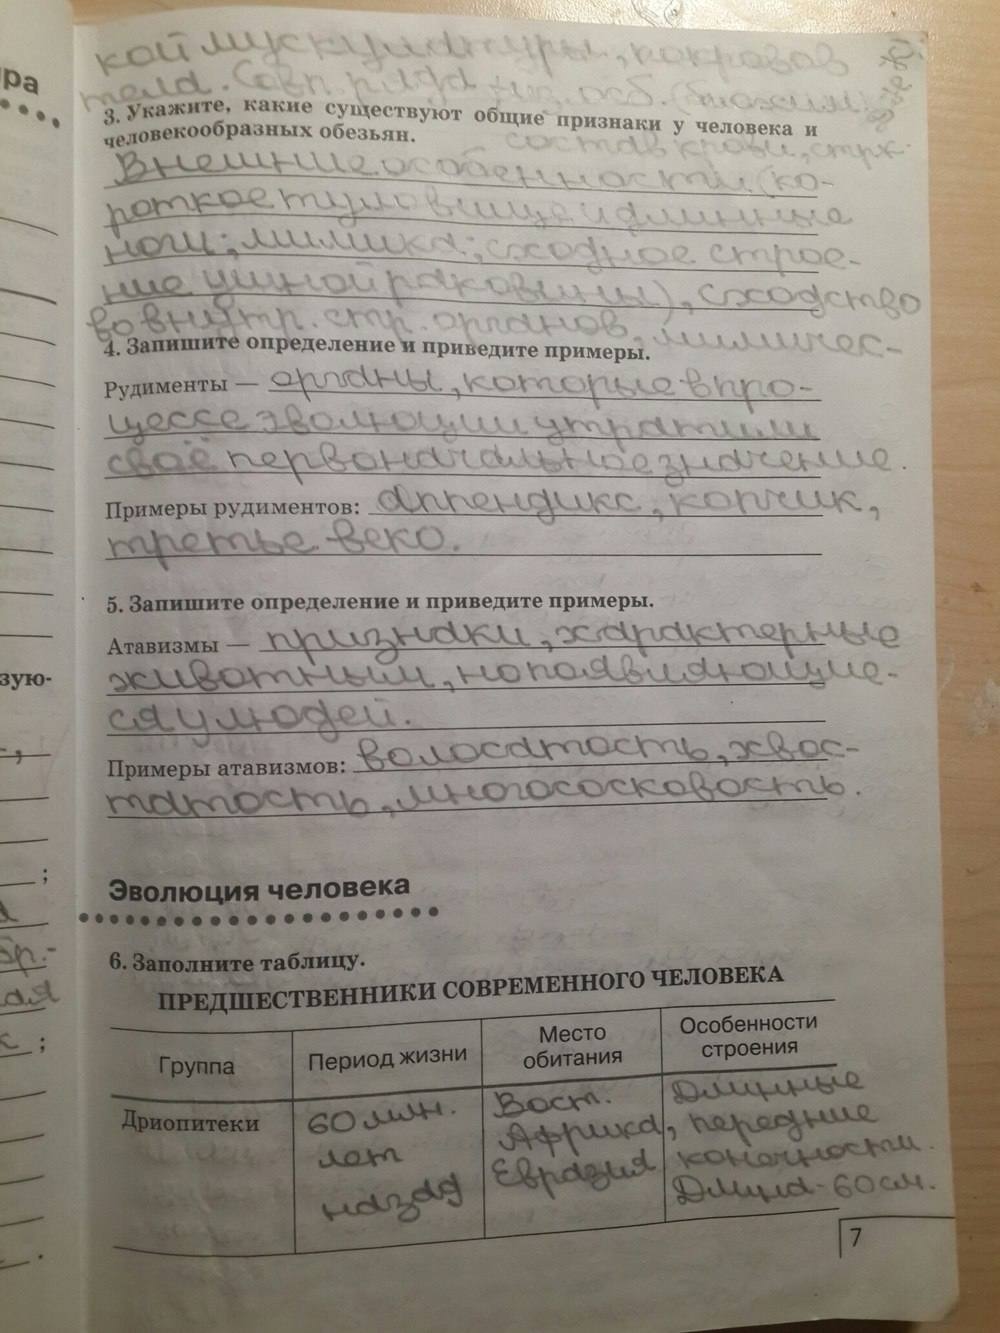 кой мускулатуры, покровов
тела. Совп. ряда физ. осб. (биохим.
3. Укажите, какие существуют общие признаки у человека и
человекообразных обезьян.
состав крови, стрк.
Внешние особенности (ко-
роткое туловище и длинные
ноги; мимика; сходное строе-
ние ушной раковины), сходство
во внутр. стр. органов, мимичес-
4. Запишите определение и приведите примеры.
Рудименты — органы, которые в про-
цессе эволюции утратили
своё первоначальное значение.
Примеры рудиментов: аппендикс, копчик,
третье веко.
5. Запишите определение и приведите примеры.
Атавизмы — признаки, характерные
животным, но появляющие-
ся у людей.
Примеры атавизмов: волосатость, хвос-
татость, многососковость.
Эволюция человека
6. Заполните таблицу.
ПРЕДШЕСТВЕННИКИ СОВРЕМЕННОГО ЧЕЛОВЕКА
Группа
Период жизни
Место
обитания
Особенности
строения
Дриопитеки
60 млн.
лет
назад
Вост.
Африка,
Евразия
Длинные
передние
конечности.
Длина - 60 см.
7
ра
зую-
;
бр.-
ая
к ;